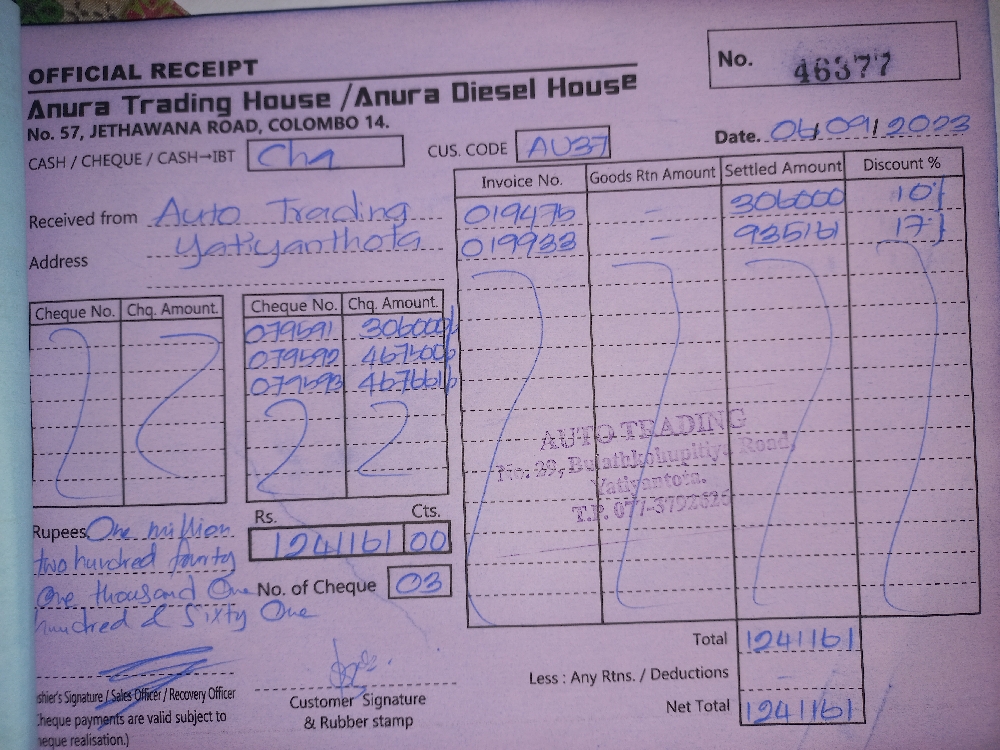 OFFICIAL RECEIPT
No. 46377
Anura Trading House / Anura Diesel House
No. 57, JETHAWANA ROAD, COLOMBO 14.
Date. 06/09/2023
CASH / CHEQUE / CASH→IBT Chq
CUS. CODE AU37
Invoice No. Goods Rtn Amount Settled Amount Discount %
019476 - 306000 10%
019933 - 935161 17%
Received from Auto Trading
Yatiyanthota
Address
Cheque No. Chq. Amount. Cheque No. Chq. Amount.
079591 306000
079592 467500
079593 467661
AUTO TRADING
No. 29, Bulathkohupitiya Road,
Yatiyantota.
T.P. 077-3792626
Rupees One million
two hundred fourty
One thousand One
hundred & Sixty One
Rs. Cts.
1241161 00
No. of Cheque 03
Total 1241161
Less : Any Rtns. / Deductions -
Net Total 1241161
shier's Signature / Sales Officer / Recovery Officer
Customer Signature
& Rubber stamp
heque payments are valid subject to
eque realisation.)